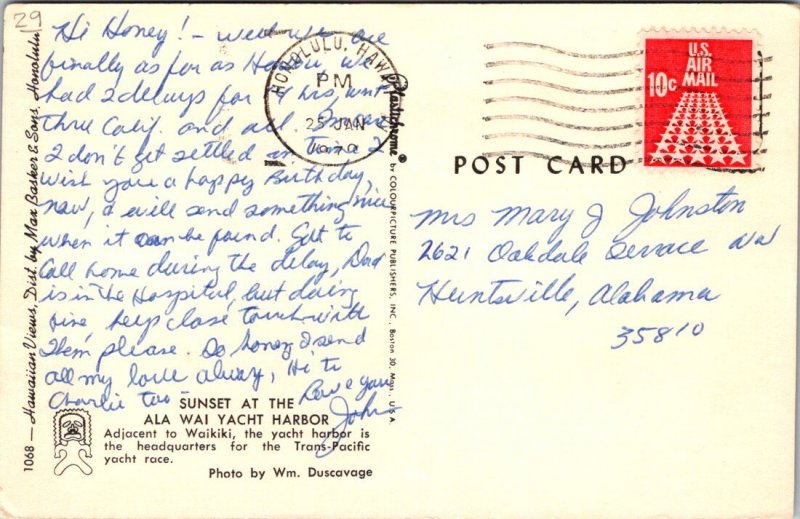 29
Hi Honey! - well we are
finally as far as Hawaii, we
had 2 delays for 4 hrs, went
thru Calif. and all. In case
I don't get settled in time I
wish you a happy Birthday,
now, & will send something nice
when it can be found. Got to
Call home during the delay, Dad
is in the Hospital, but doing
fine, keep close touch with
them, please. So honey I send
all my love always, Hi to
Charlie too - Love you
John
SUNSET AT THE
ALA WAI YACHT HARBOR
Adjacent to Waikiki, the yacht harbor is
the headquarters for the Trans-Pacific
yacht race.
Photo by Wm. Duscavage
1068 — Hawaiian Views, Dist. by Max Basker & Sons, Honolulu
Plastichrome ® by COLOURPICTURE PUBLISHERS, INC., Boston 30, Mass., U.S.A.
HONOLULU, HAWAII
PM
25 JAN
1970
U.S.
AIR
MAIL
10c
POST CARD
Mrs Mary J Johnston
2621 Oakdale Terrace NW
Huntsville, Alabama
35810